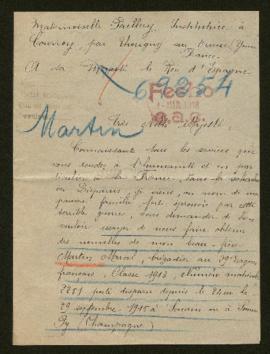 Mademoiselle Institutrice à
par Thorigny sur Oreuse Yonne
France.
A sa Majesté le Roi d'Espagne.
69254
Fecho
Martin
Très Noble Majesté
Connaissant tous les services que
vous rendez à l'humanité et en par-
ticulier à la France, dans la recherche
des Disparus, je viens, au nom de ma
pauvre famille fort éprouvée par cette
terrible guerre, vous demander de bien
vouloir essayer de nous faire obtenir
des nouvelles de mon beau-frère
Martin Marcel, brigadier au
français, Classe 1913, numéro matricule
porté disparu depuis le
29 septembre 1915 à Souain ou à Somme
Py (Champagne)